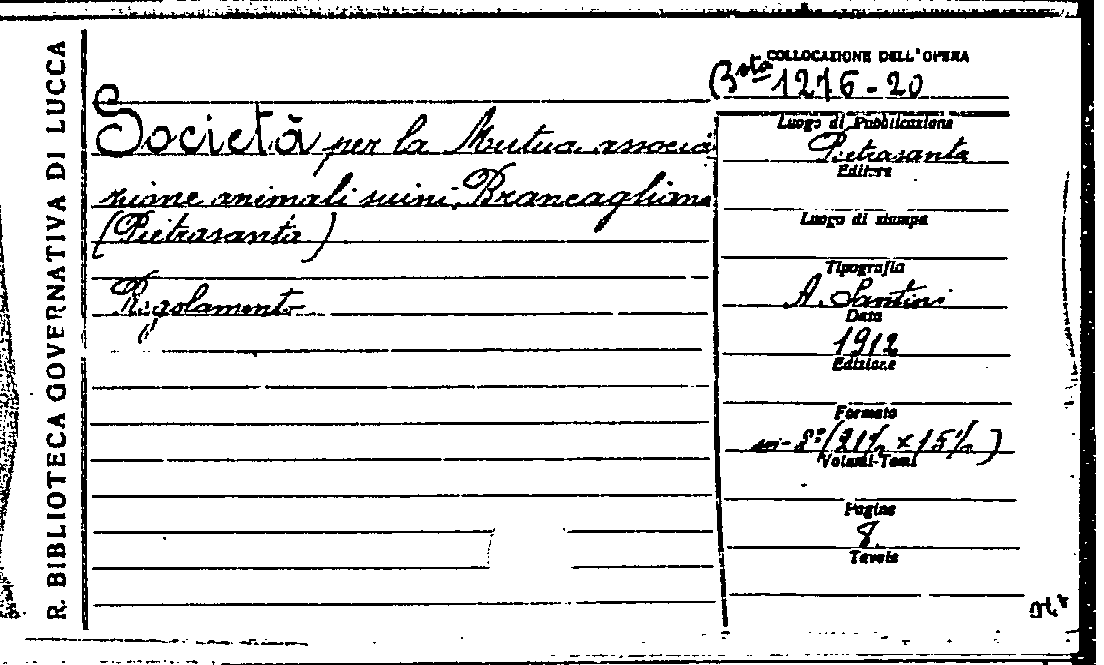 R. BIBLIOTECA GOVERNATIVA DI LUCCA
COLLOCAZIONE DELL'OPERA
Bsta 1276-20
Società per la Mutua associa
zione animali suini, Brancagliana
(Pietrasanta)
Regolamento
Luogo di Pubblicazione
Pietrasanta
Editore
Luogo di stampa
Tipografia
A. Santini
Data
1912
Edizione
Formato
in-8º (21½ × 15½)
Volumi-Tomi
Pagine
8.
Tavole